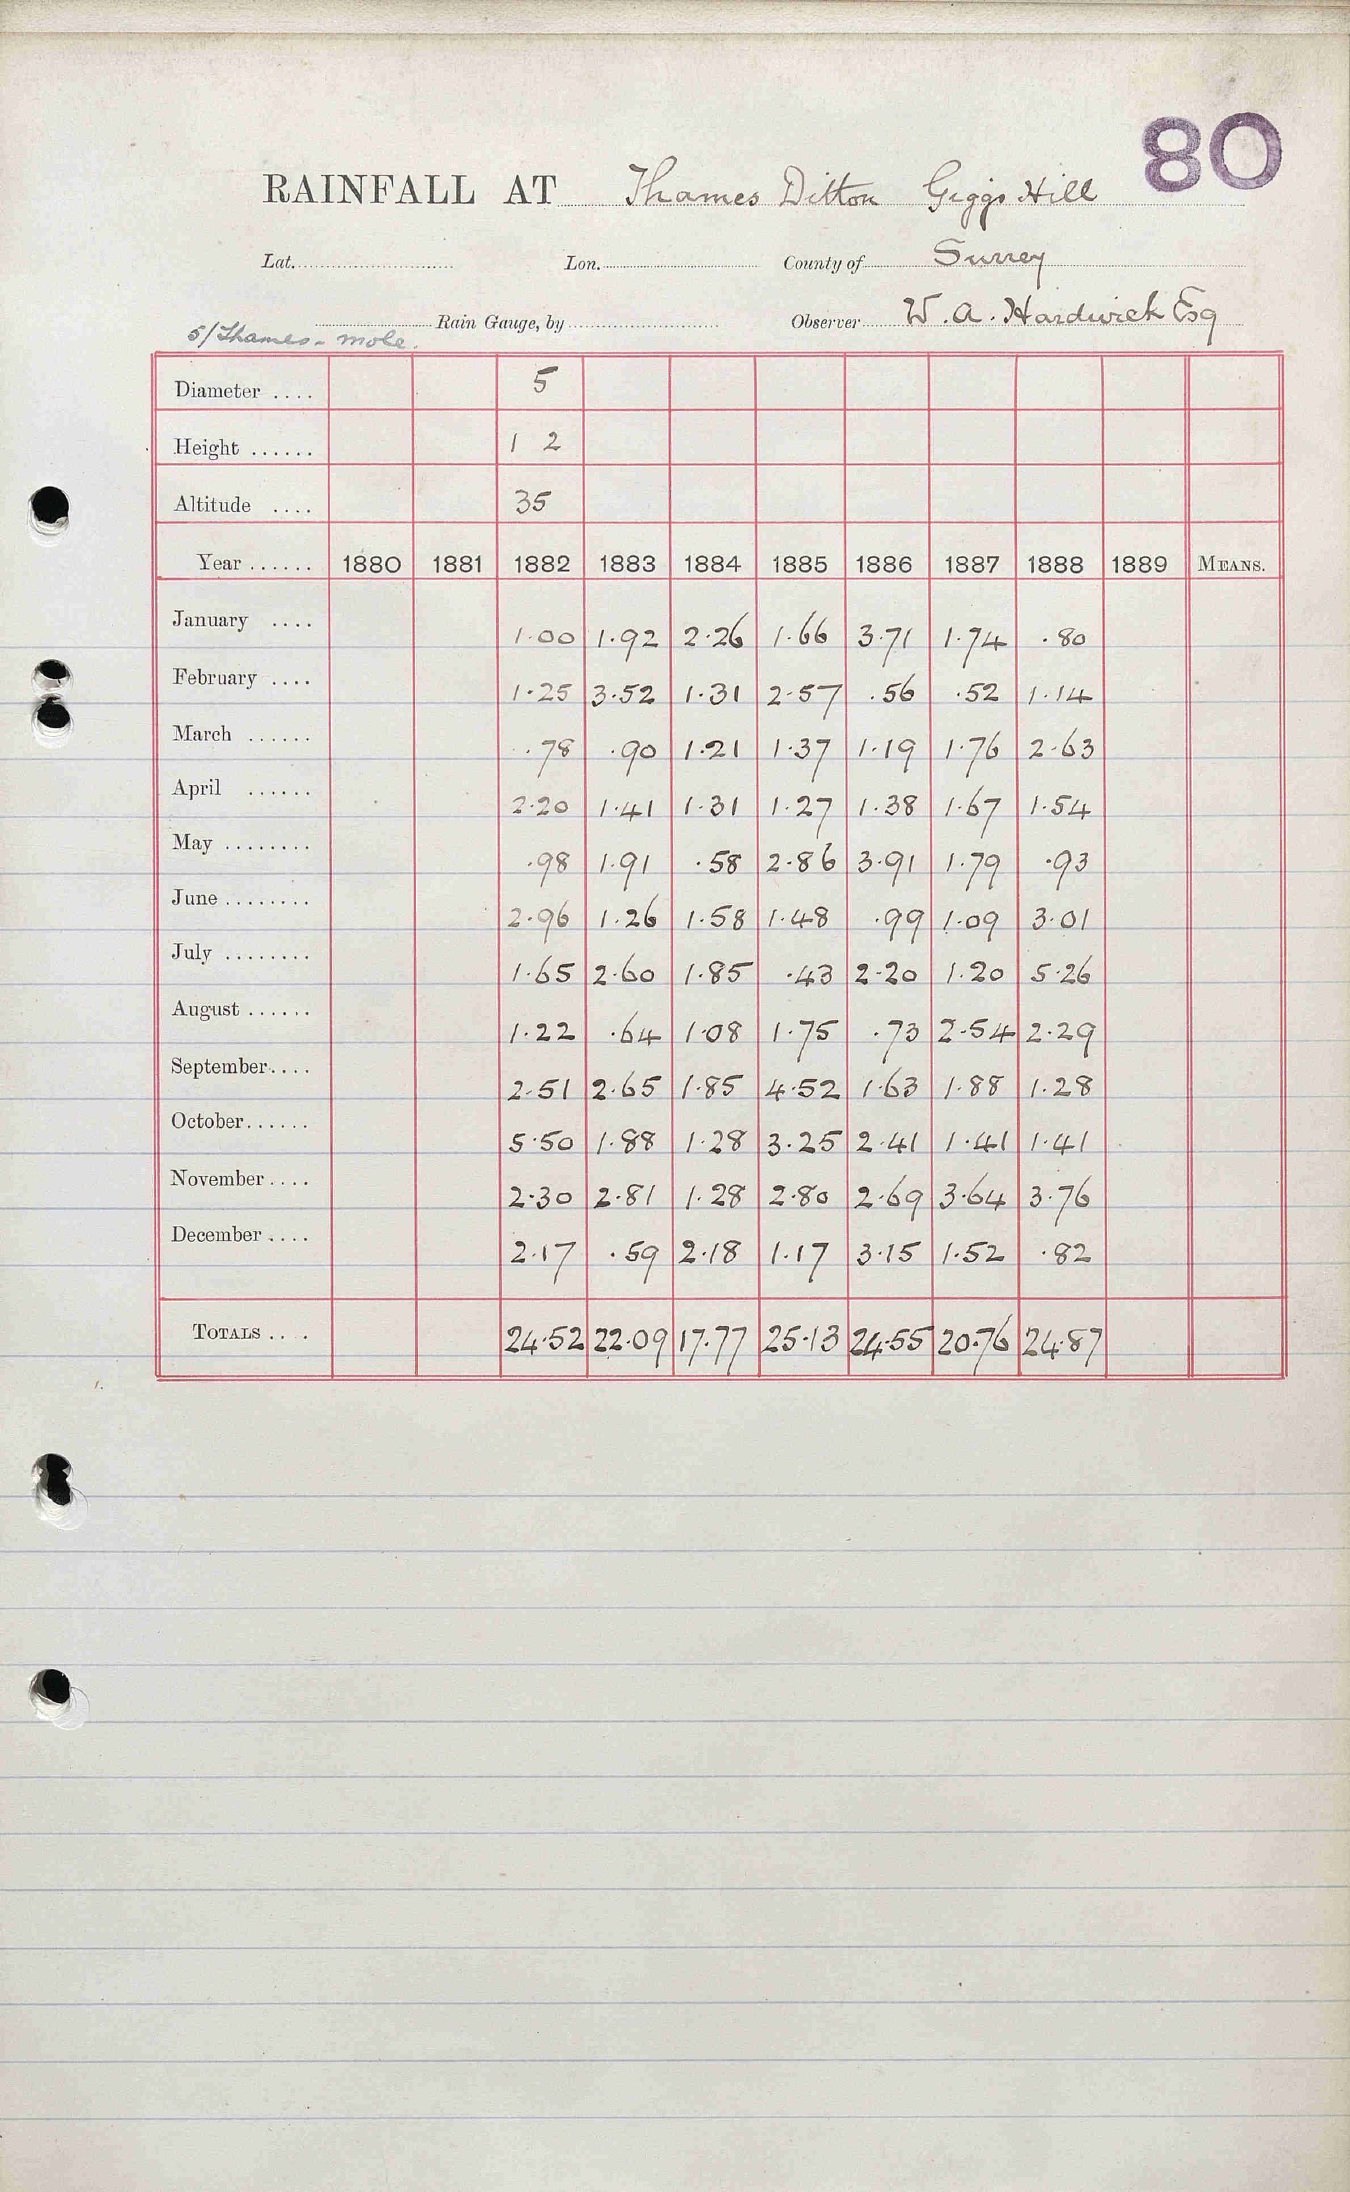 80
RAINFALL AT Thames Ditton Giggs Hill
Lat. Lon. County of Surrey
Rain Gauge, by Observer W. A. Hardwick Esq
5/Thames - Mole.
Diameter .... 5
Height ...... 1 2
Altitude .... 35
Year ...... 1880 1881 1882 1883 1884 1885 1886 1887 1888 1889 MEANS.
January .... 1.00 1.92 2.26 1.66 3.71 1.74 .80
February .... 1.25 3.52 1.31 2.57 .56 .52 1.14
March ...... .78 .90 1.21 1.37 1.19 1.76 2.63
April ...... 2.20 1.41 1.31 1.27 1.38 1.67 1.54
May ........ .98 1.91 .58 2.86 3.91 1.79 .93
June ........ 2.96 1.26 1.58 1.48 .99 1.09 3.01
July ........ 1.65 2.60 1.85 .43 2.20 1.20 5.26
August ...... 1.22 .64 1.08 1.75 .73 2.54 2.29
September.... 2.51 2.65 1.85 4.52 1.63 1.88 1.28
October...... 5.50 1.88 1.28 3.25 2.41 1.41 1.41
November.... 2.30 2.81 1.28 2.80 2.69 3.64 3.76
December .... 2.17 .59 2.18 1.17 3.15 1.52 .82
TOTALS .... 24.52 22.09 17.77 25.13 24.55 20.76 24.87